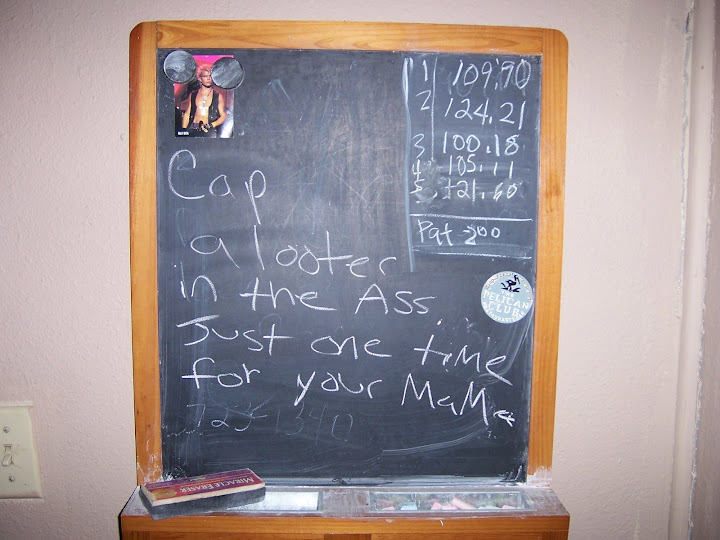 1 109.90
2 124.21
3 100.18
4 105.11
5 121.60
Pat 200
Cap
a looter
in the Ass
Just one time
for your MaMa
725-1340
THE
PELICAN
CLUB
MIRACLE ERASER